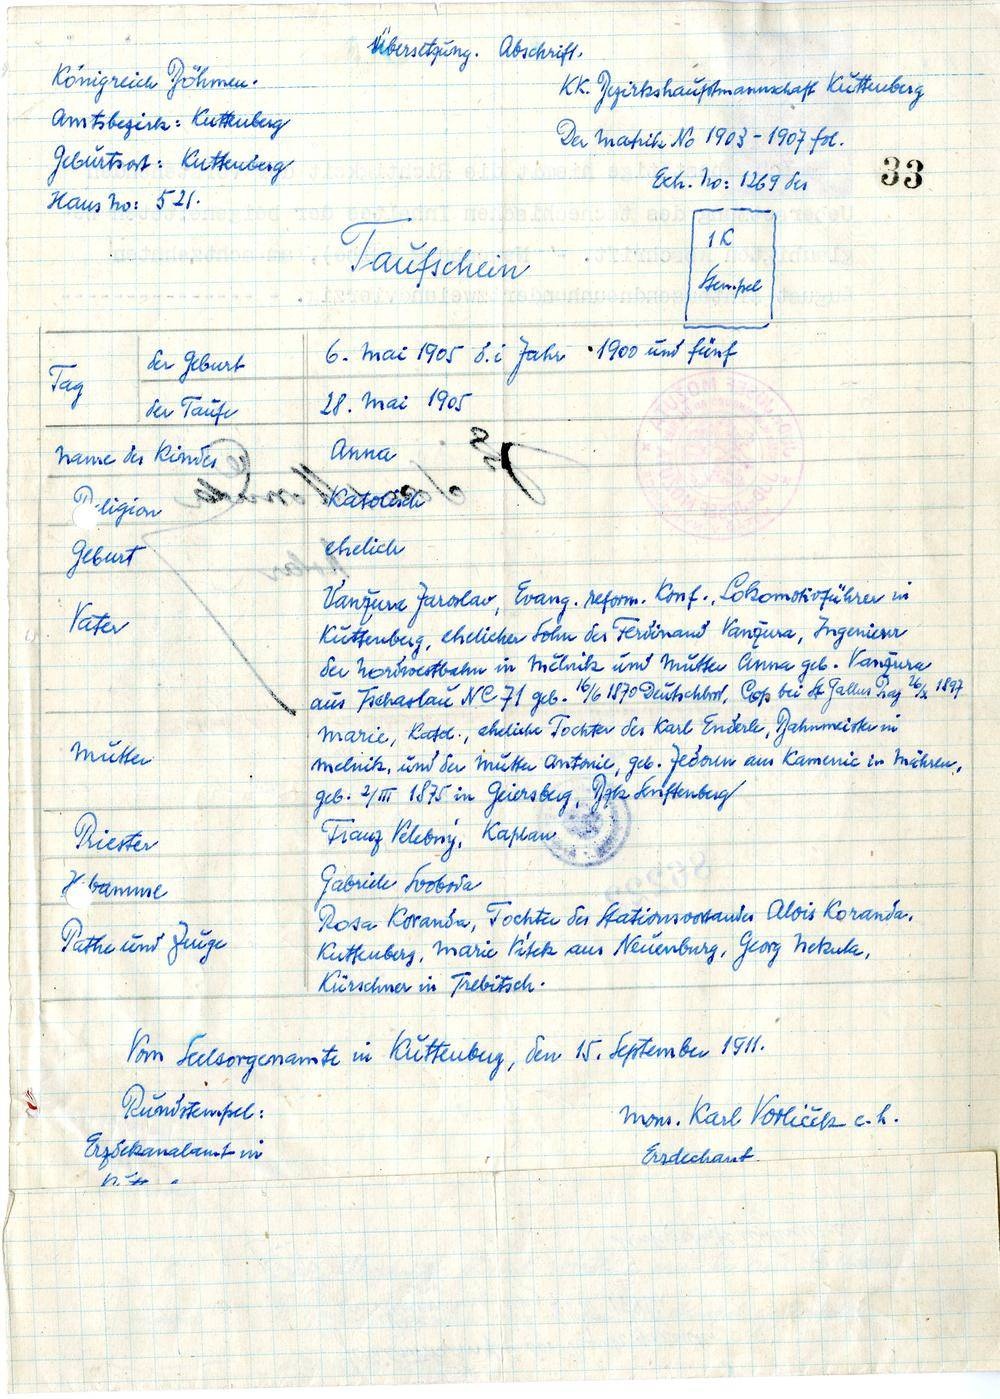 Übersetzung. Abschrift.
Königreich Böhmen.
KK. Bezirkshauptmannschaft Kuttenberg
Amtsbezirk: Kuttenberg
Der Matrik No 1903-1907 fol.
Geburtsort: Kuttenberg
33
Exh. No: 1269 des
Haus No: 521.
1K
Stempel
Taufschein
Tag
der Geburt
6. Mai 1905 d.i Jahr 1900 und fünf
der Taufe
28. Mai 1905
Name des Kindes
Anna
Religion
Katolisch
Geburt
ehelich
Vater
Vanžura Jaroslav, Evang. reform. Konf., Lokomotivführer in
Kuttenberg, ehelicher Sohn des Ferdinand Vanžura, Ingenieur
der Nordwestbahn in Mělnik und Mutter Anna geb. Vanžura
aus Tschaslau NC 71 geb. 16/6 1870 Deutschbrod, Cop bei St Gallus Prag 26/ 1897
Mutter
Marie, Kath., eheliche Tochter des Karl Enderle, Bahnmeister in
Melnik, und der Mutter Antonie, geb. aus Kamenic in Mähren,
geb. 2/III 1875 in Geiersberg, Bzk Senftenberg
Priester
Franz Velebný, Kaplan
Hebamme
Gabriele Svoboda
Pathe und Zeuge
Rosa Koranda, Tochter des Stationsvorstandes Alois Koranda,
Kuttenberg, Marie Vitek aus Neuenburg, Georg Nekula,
Kürschner in Trebitsch.
Vom Seelsorgenamte in Kuttenberg, den 15. September 1911.
Rundstempel:
Mons. Karl Vorliček e.h.
Erzdekanalamt in
Erzdechant